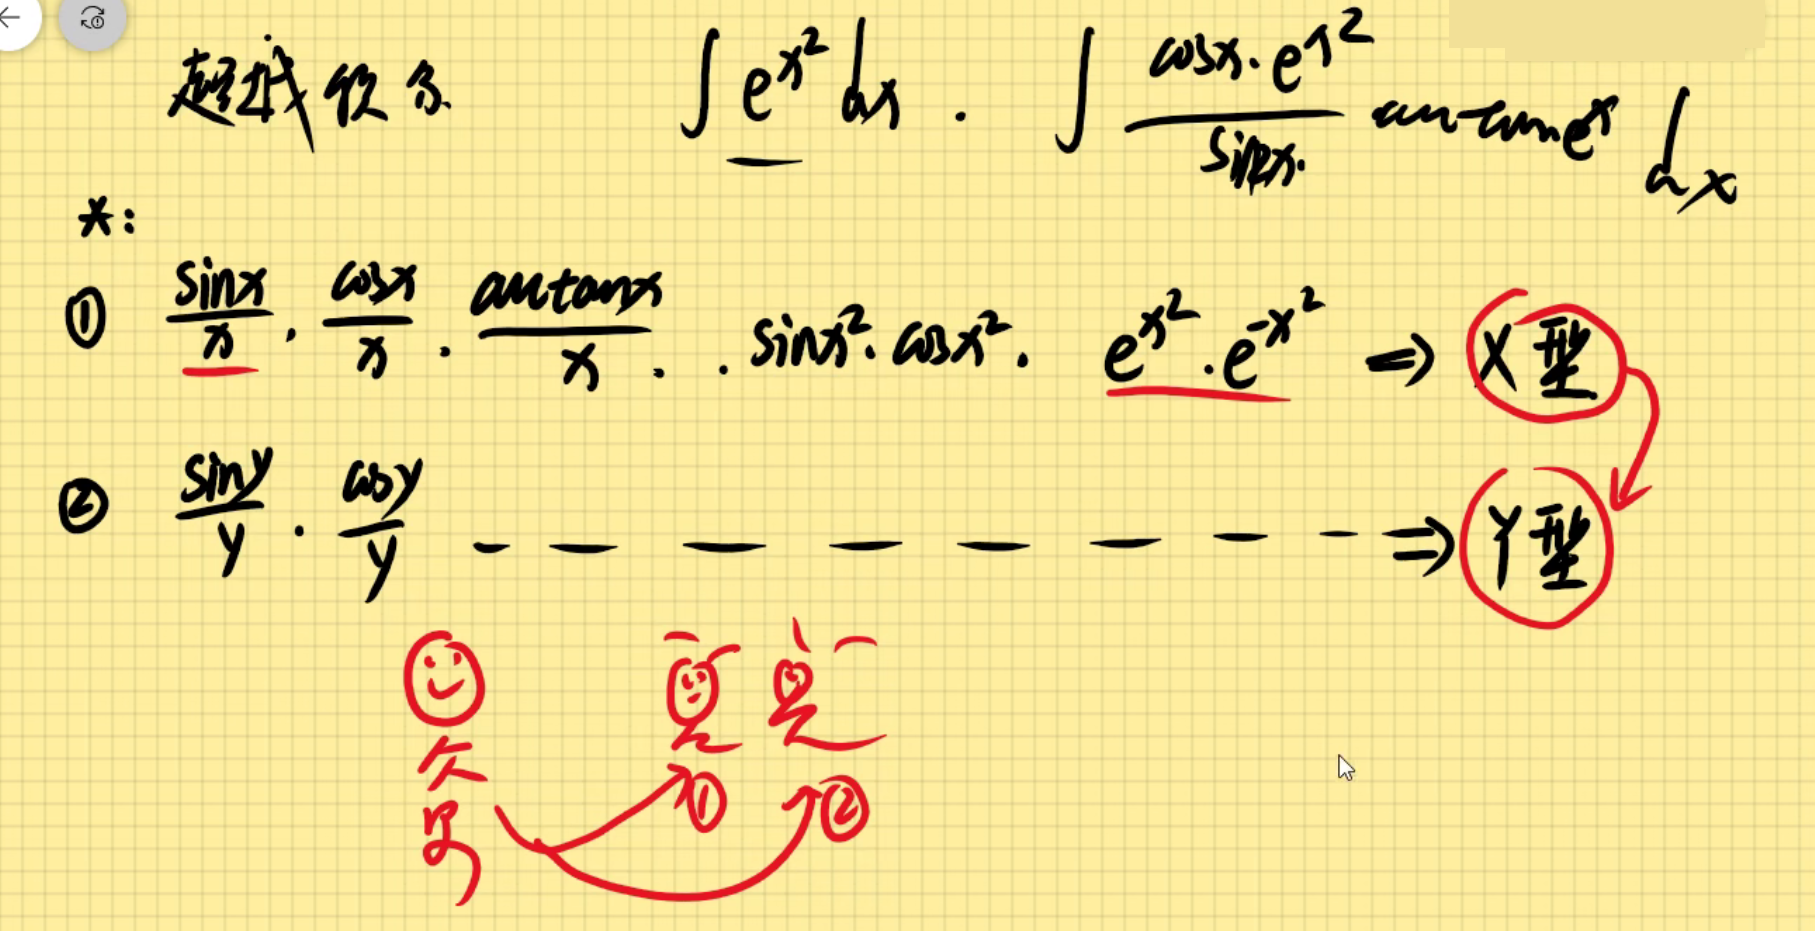 超越积分 ∫ e^{x²} dx . ∫ \frac{cosx·e^{x²}}{sinx.} arctan e^x dx
*:
① \frac{sinx}{x} . \frac{cosx}{x} . \frac{arctanx}{x} . . sinx². cosx². e^{x²} . e^{-x²} ⇒ X型
② \frac{siny}{y} . \frac{cosy}{y} - - - - - - - - - ⇒ Y型
① ②